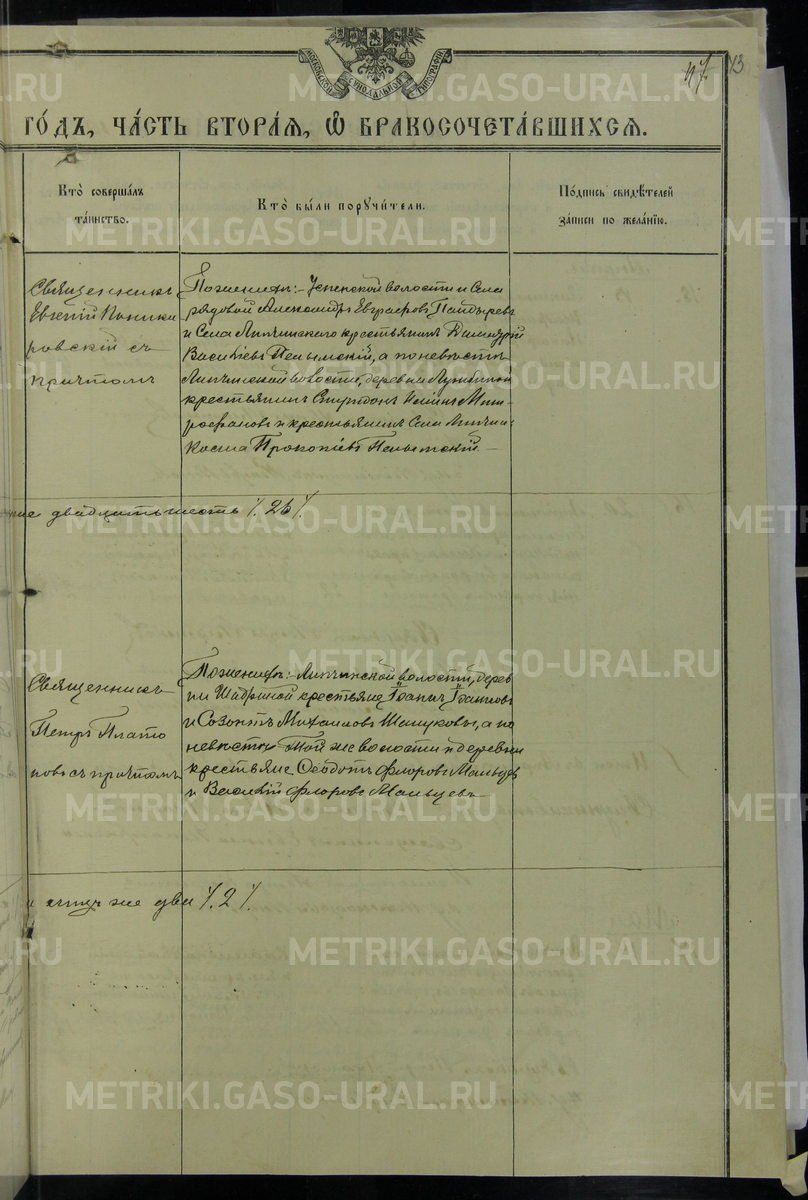 МОСКОВСКОЙ СѴНОДАЛЬНОЙ ТИПОГРАФІИ
47.
13
ГО́ДЪ, ЧА́СТЬ ВТОРА́Я, Ѡ БРАКОСОЧЕТА́ВШИХСЯ.
Кто̀ соверша́лъ
та́инство.
Кто̀ бы́ли порꙋчи́тели.
По́дпись свидѣ́телей
за́писи по жела́нїю.
Священникъ
Евгеній
ровскій съ
причтомъ
По женихѣ:- Успенской волости и села
рядовой Александръ Евграфовъ
и села Липчинскаго крестьянинъ Димитрій
Василіевъ Пелымскій, а по невѣстѣ
Липчинской волости, деревни
крестьянинъ Спиридонъ
рофановъ и крестьянинъ села
Косма Прокопіевъ Пелымскій.-
двадцать шесть ٪ 26 ٪
Священникъ
Петръ Плато
новъ съ причтомъ
По женихѣ:- Липчинской волости, дерев
ни Шадриной крестьяне Іоаннъ Іоанновъ
и Созонтъ Михаиловъ Шашуковы, а по
невѣстѣ той же волости и деревни
крестьяне Ѳеодотъ Флоровъ Мальцев
и Василій Флоровъ Мальцевъ
же два ٪ 2 ٪
METRIKI.GASO-URAL.RU